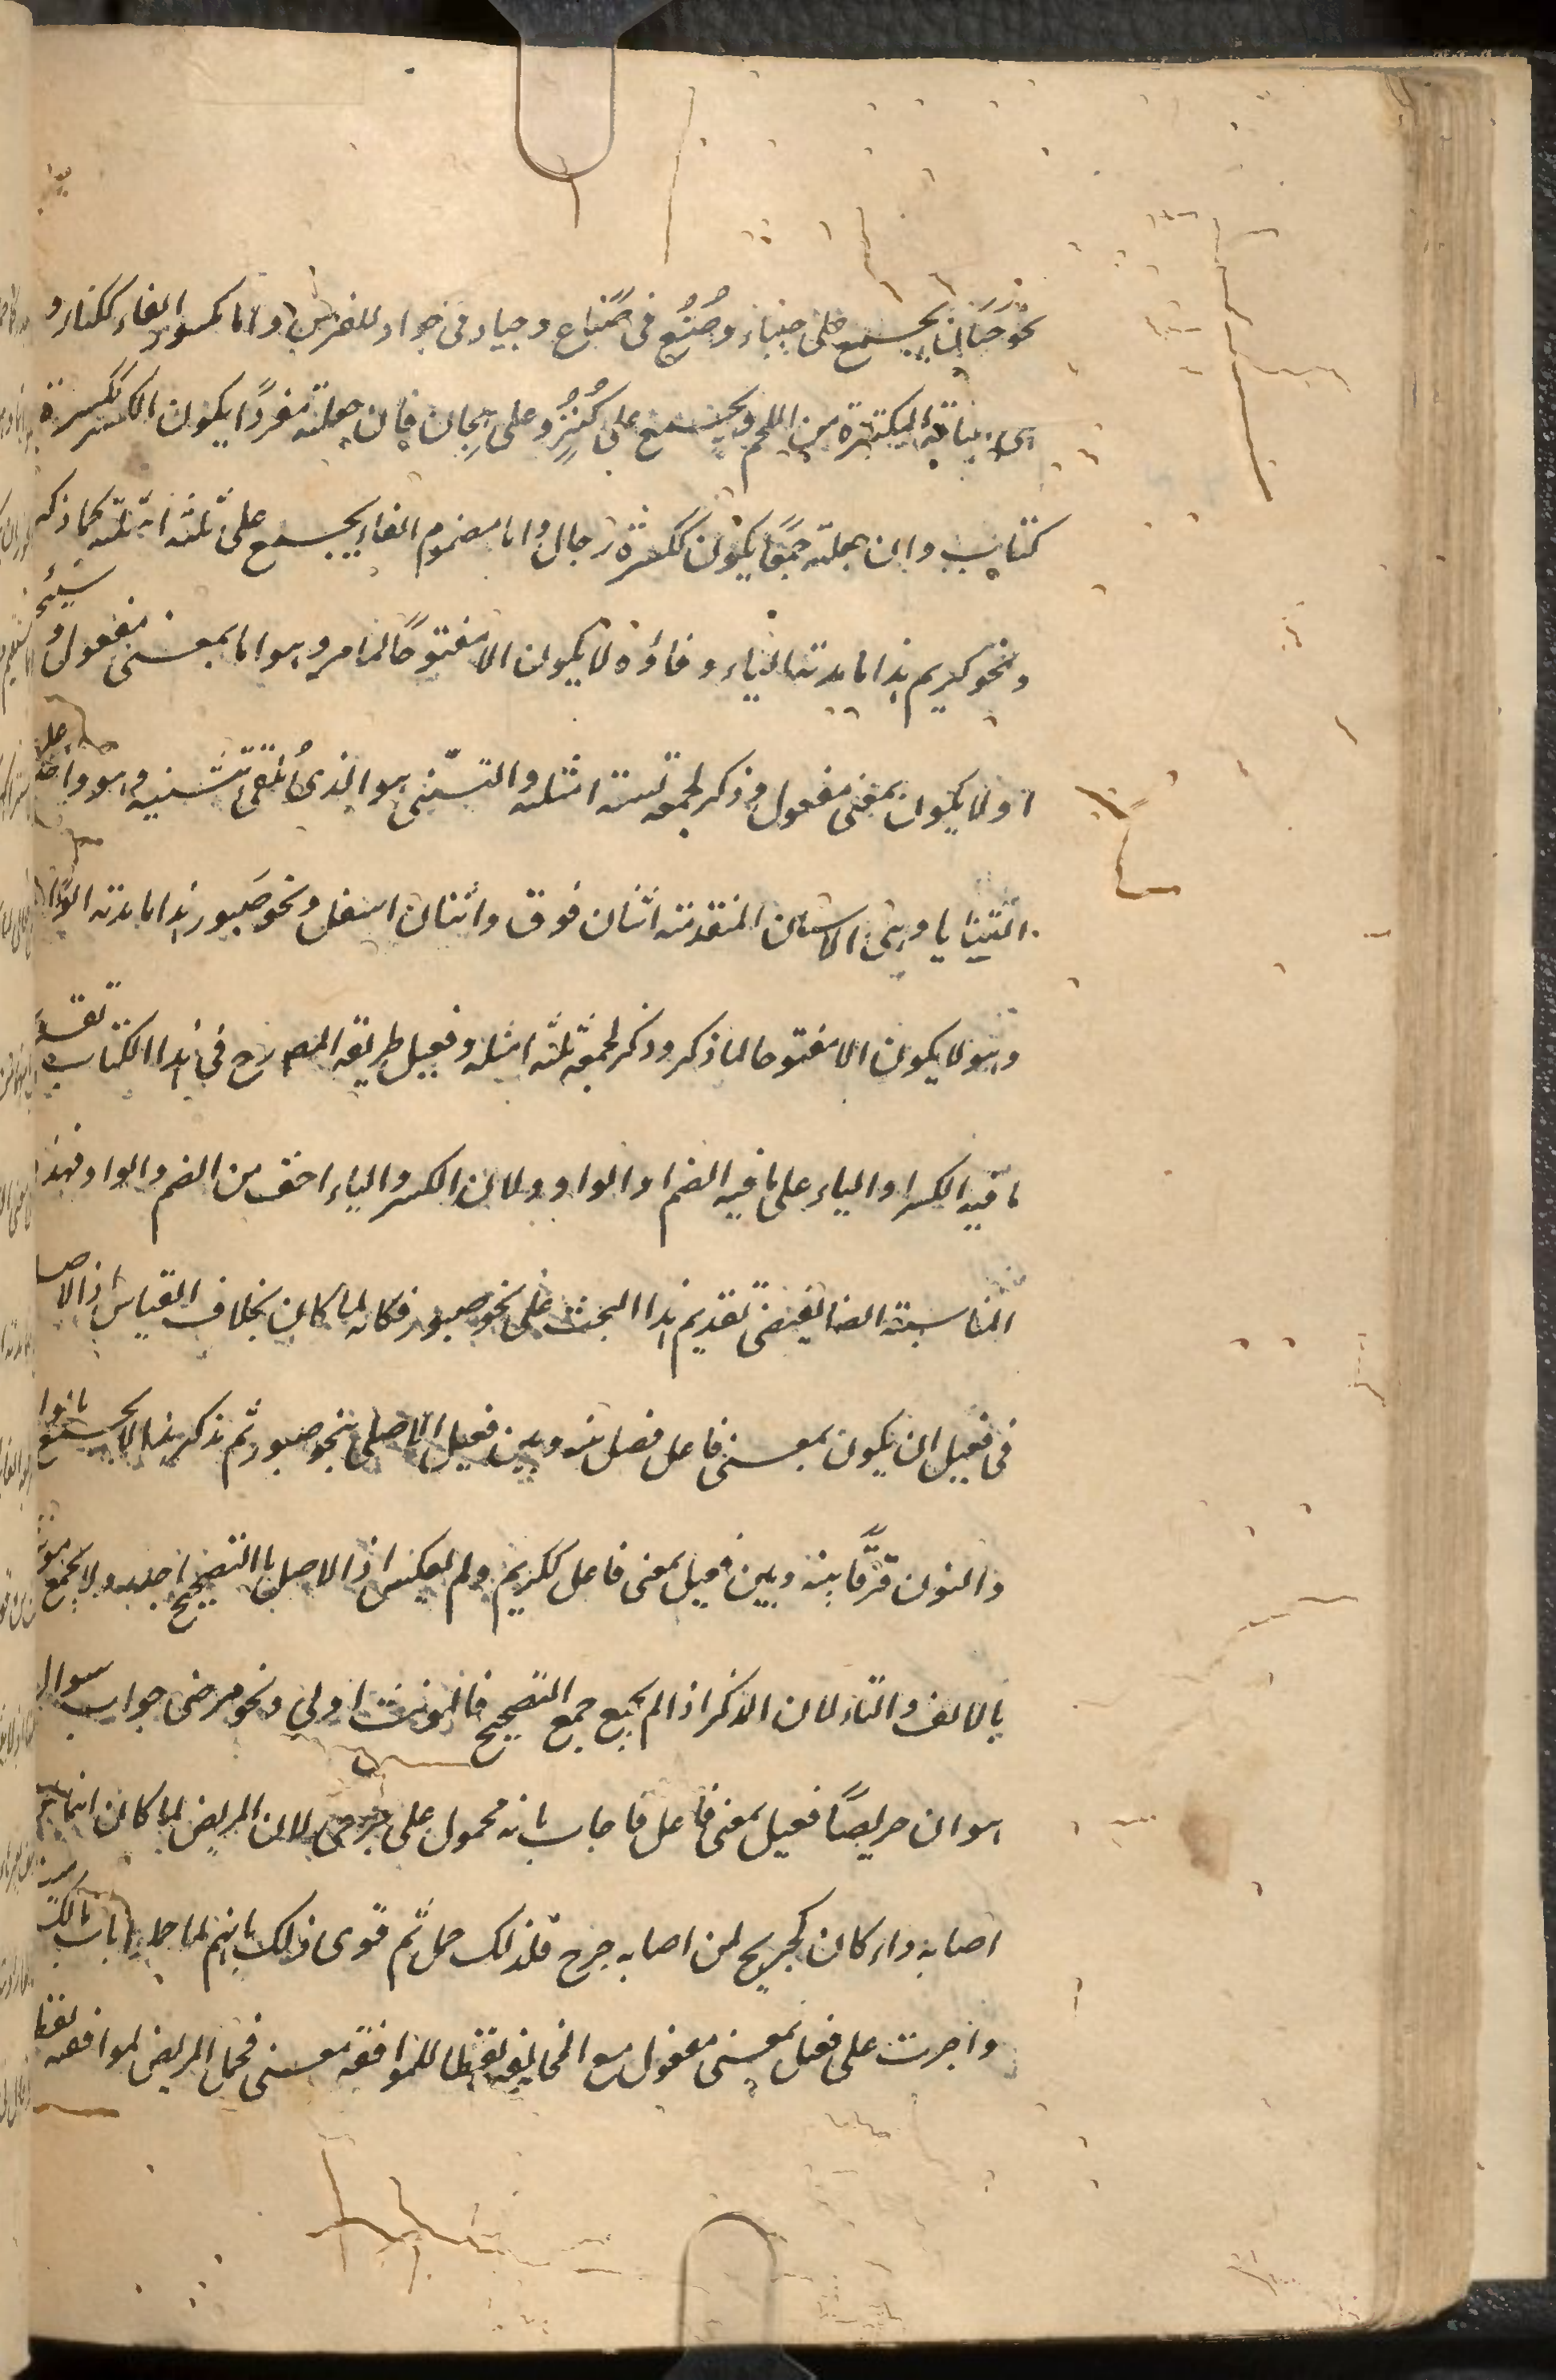 نحو جبان يجمع على جبناء وصُنُع فى صَناع وجياد فى جواد للفرس واما مكسور الفاء ككناز و
هى الناقة المكتنزة من اللحم ويجمع على كُنُز وعلى هجان فان جعلته مفردًا يكون الكسر ككسرة
كتاب وان جعلته جمعًا يكون ككسرة رجال واما مضموم الفاء يجمع على ثلثة ابنية كما ذكر
ونحو كريم هذا ما مدته الياء وفاؤه لا يكون الا مفتوحًا لما مر وهو اما بمعنى مفعول و سيجئ
او لا يكون بمعنى مفعول وذكر لجمعه ستة امثلة والثنى هو الذى اُلقى ثنيه وهو واحد
الثنايا وهى الاسنان المتقدمة اثنان فوق واثنان اسفل ونحو صَبور هذا ما مدته الواو
وهو لا يكون الا مفتوحا لما ذكر وذكر لجمعه ثلثة امثلة وفعيل طريقة المصرح فى هذا الكتاب تقديم
ما فيه الكسر او الياء على ما فيه الضم او الواو ولان الكسر والياء اخف من الضم والواو فهذه
المناسبة ايضا يقتضى تقديم هذا البحث على نحو صبور فكانه لما كان بخلاف القياس اذ الاصل
فى فعيل ان يكون بمعنى فاعل فصل بينه وبين فعيل الاصلى بنحو صبور ثم ذكر هذا لا يجمع بالواو
والنون فرقًا بينه وبين فعيل بمعنى فاعل ككريم ولم يعكس اذ الاصل بالتصحيح اجدر ولا يجمع مؤنثه
بالالف والتاء لان المذكر اذا لم يجمع جمع التصحيح فالمونث اولى ونحو مرضى جواب سوال
هو ان مريضًا فعيل بمعنى فاعل فاجاب بانه محمول على جرحى لان المريض لما كان
اصابه داء كان كجريح لمن اصابه جرح فلذلك حمل ثم قوى ذلك بانهم لما حملوا باب هالك
واجرب على فعيل بمعنى مفعول مع المخالفة لفظا للموافقة معنى فحمل المريض لموافقته لفظا